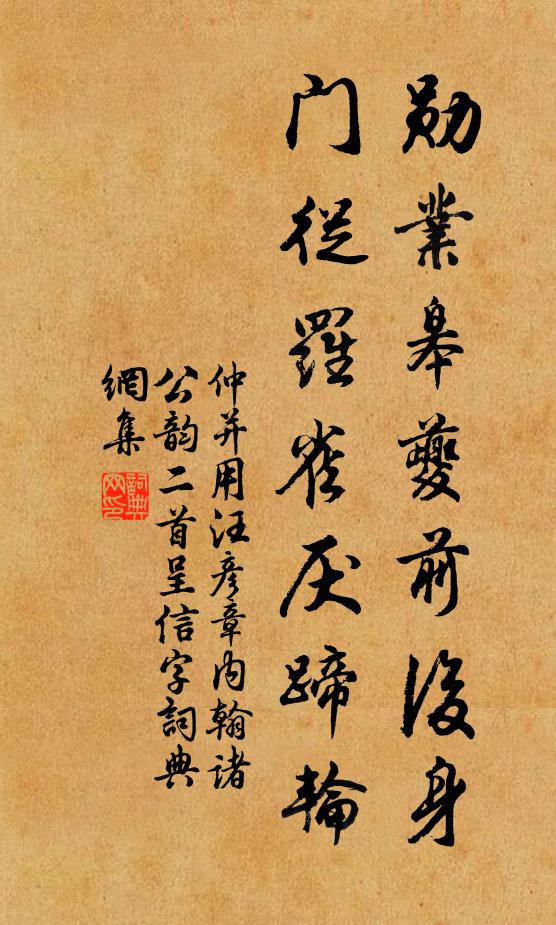 勋業皋夔前後身
门從羅雀厌蹄輪
仲并用汪彦章内翰诸
公韵二首呈信字詞典
網集
詞典网印